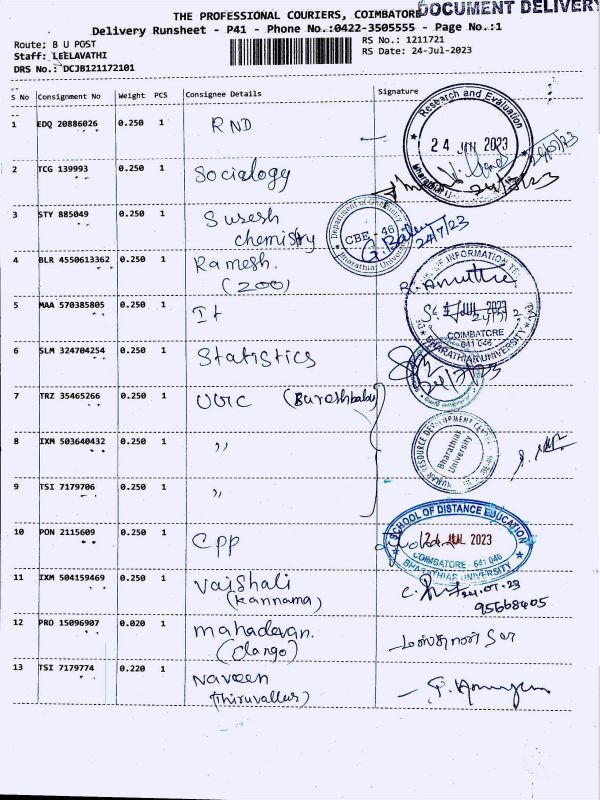 DOCUMENT DELIVERY
THE PROFESSIONAL COURIERS, COIMBATORE
Delivery Runsheet - P41 - Phone No.:0422-3505555 - Page No.:1
Route; B U POST
RS No.: 1211721
Staff: LEELAVATHI
RS Date: 24-Jul-2023
DRS No.: DCJB121172101
S No Consignment No Weight PCS Consignee Details Signature
1 EDQ 20886026 0.250 1 RND
Research and Evaluation
24 2023
2 TCG 139993 0.250 1 Socialogy
24/7/23
3 STY 885049 0.250 1 Suresh
chemistry
Department of Chemistry
CBE - 46
Bharathiar University
24/7/23
4 BLR 4550613362 0.250 1 Ramesh.
(ZOO)
5 MAA 570385805 0.250 1 It
OF INFORMATION
2023
COIMBATORE
641 046
BHARATHIAR UNIVERSITY
6 SLM 324704254 0.250 1 Statistics
24/7/23
7 TRZ 35465266 0.250 1 UGC (Sureshbabu)
8 IXM 503640432 0.250 1 ,,
HUMAN RESOURCE DEVELOPMENT
Bharathiar
University
9 TSI 7179706 0.250 1 ,,
10 PON 2115609 0.250 1 CPP
SCHOOL OF DISTANCE EDUCATION
24 JUL 2023
COIMBATORE - 641 046
BHARATHIAR UNIVERSITY
11 IXM 504159469 0.250 1 Vaishali
(Kannama)
24.07.23
12 PRO 15096907 0.020 1 Mahadevan.
13 TSI 7179774 0.220 1 Naveen
(Thiruvallur)